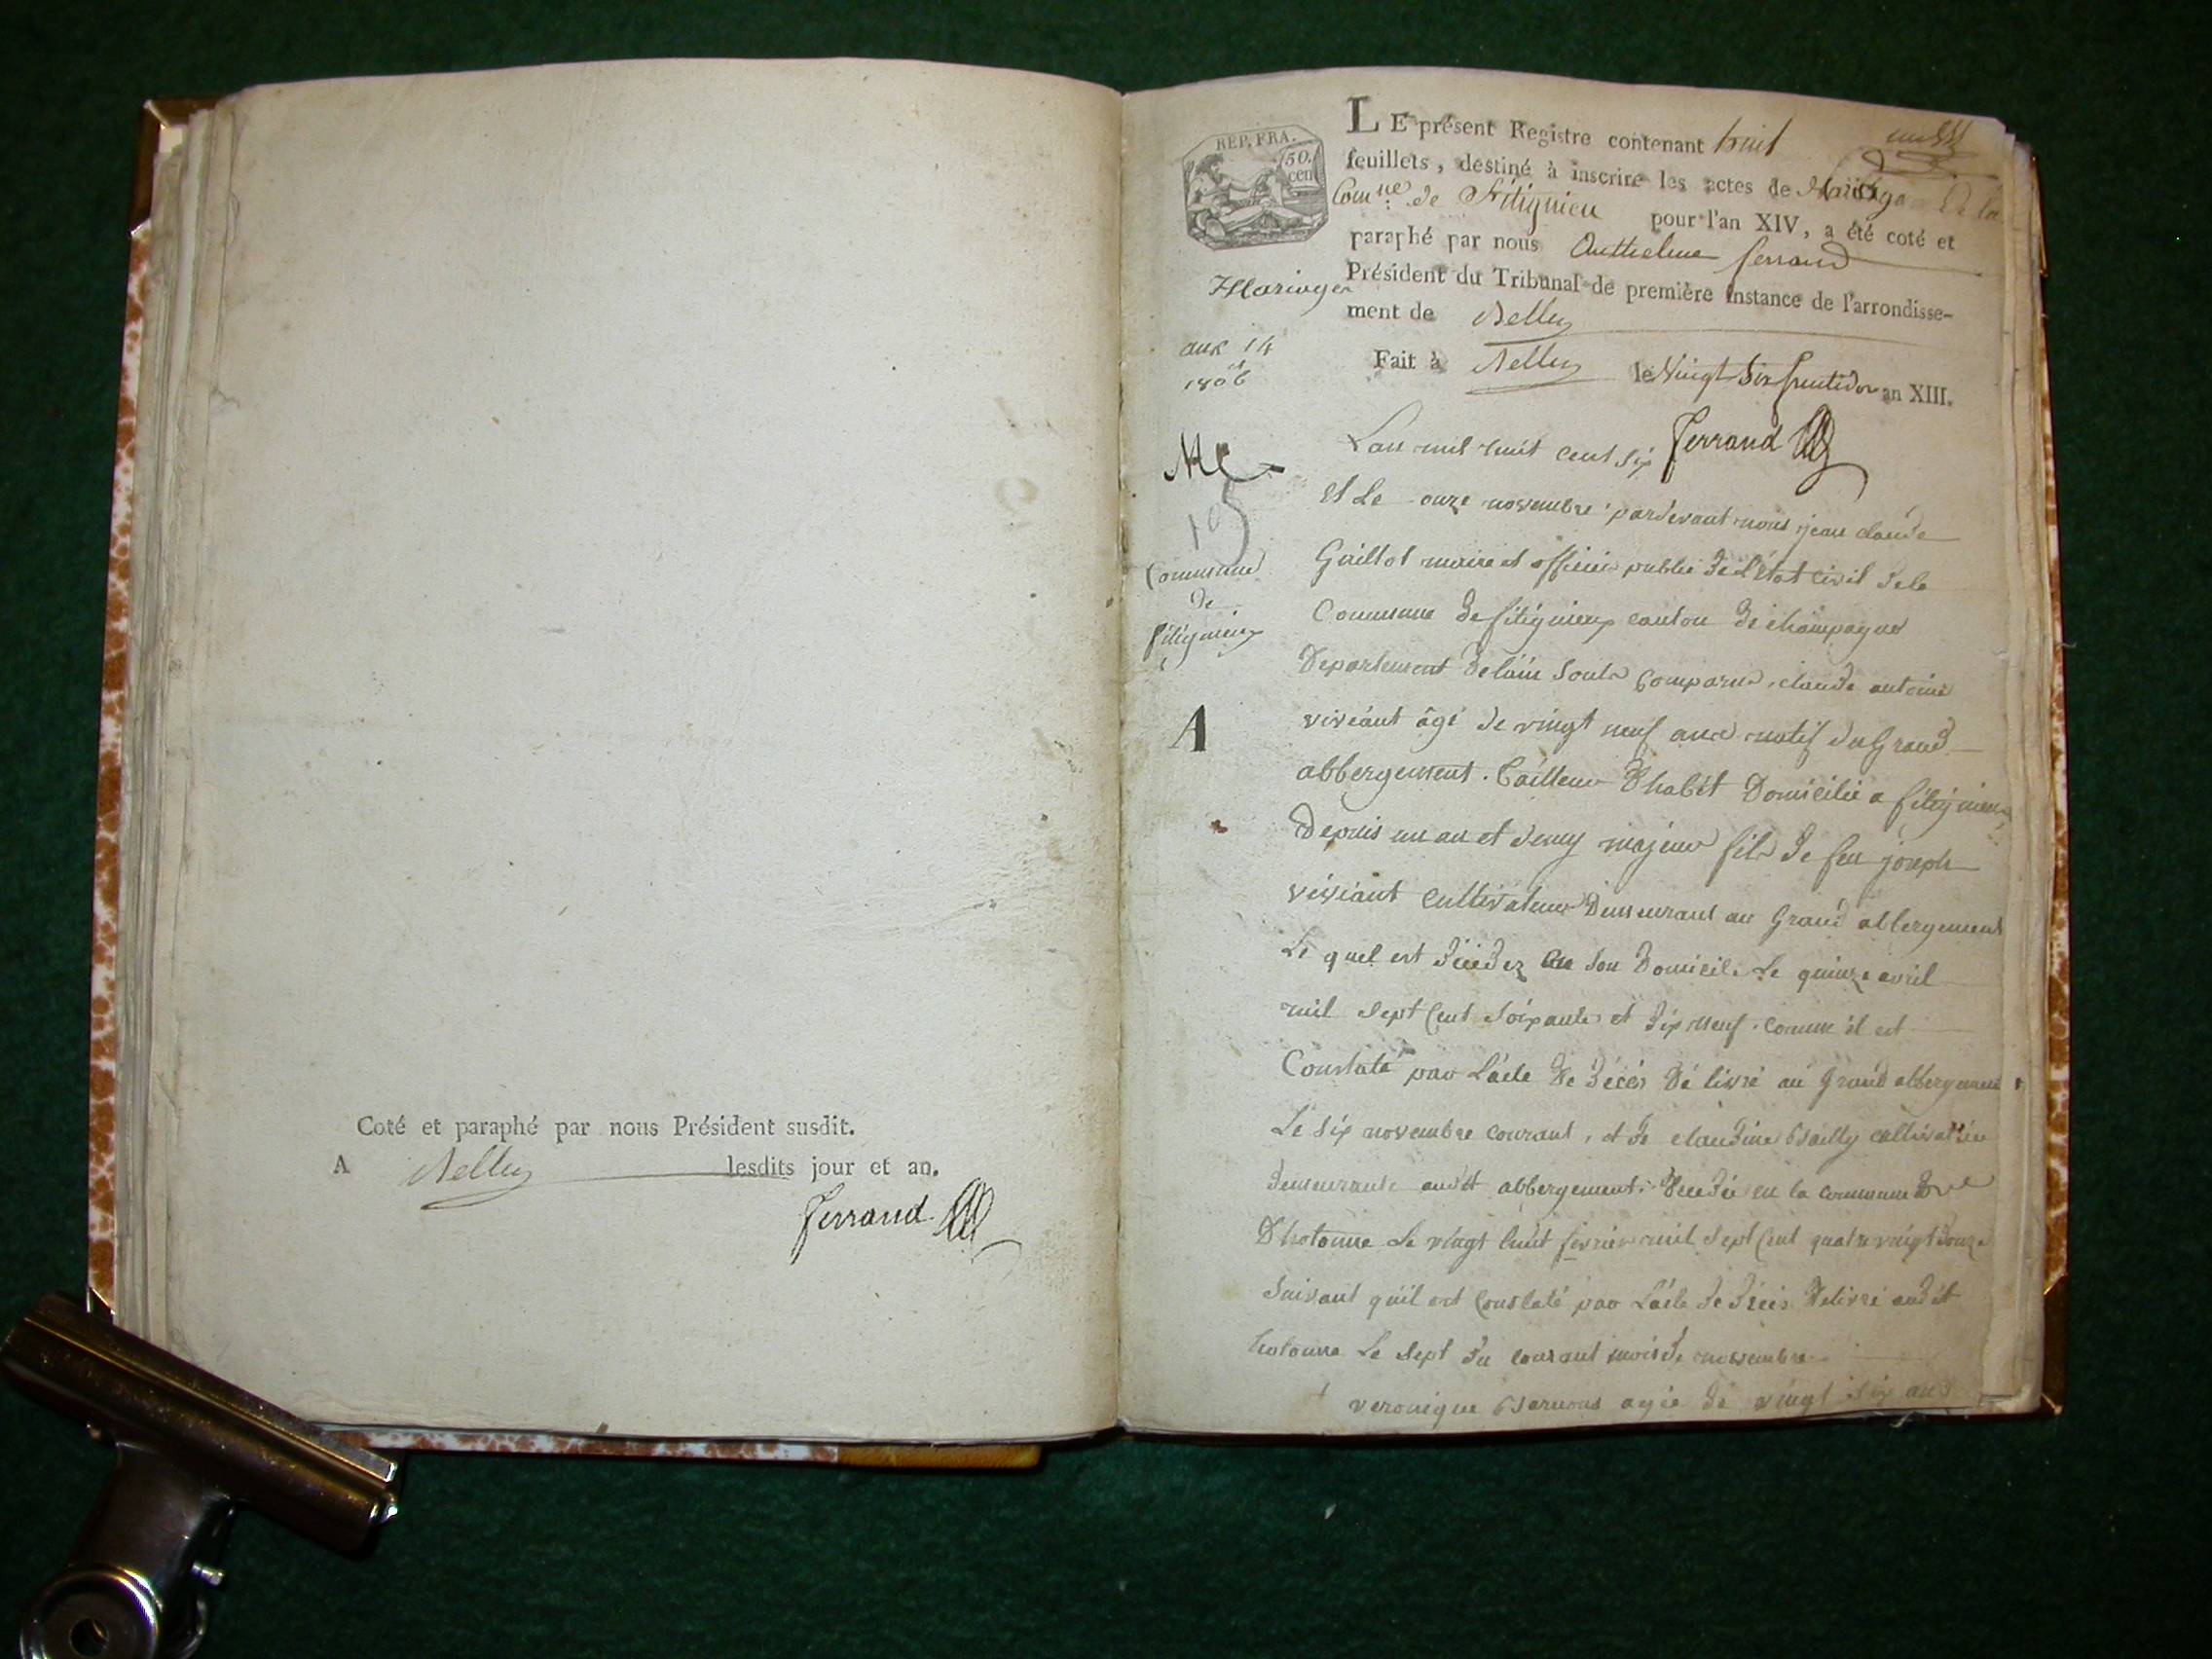 Coté et paraphé par nous Président susdit.
A Belley lesdits jour et an.
Ferrand
REP. FRA.
50.
cen
LE présent Registre contenant huit
feuillets, destiné à inscrire les actes de Mariage de la
Comne de Fitignieu pour l'an XIV, a été coté et
paraphé par nous Anthelme ferrand
Président du Tribunal de première instance de l'arrondisse-
ment de Belley
Fait à Belley le Vingt Six fructidor an XIII.
Ferrand
Mariages
ans 14
et
1806
105
Commune
de
fitignieux
A
Lan mil huit cent six
et Le onze novembre pardevant nous jean claude
Guillot maire et officier public de L'état civil dela
Commune de fitignieux canton de champagne
Departement delain sont comparus claude antoine
viviant âgé de vingt neuf ans natif du Grand
abbergement. tailleur d'habit Domicilié a fitignieux
Depuis un an et demy majeur fils de feu joseph
viviant cultivateur Demeurant au Grand abbergement
Le quel est décédez en son Domicile Le quinze avril
mil sept cent soixante et dix neuf. comme il est
Constaté par L'acte de décés délivré au Grand abbergement
Le six novembre courant, et de claudine Bailly cultivatrice
demeurante audit abbergement. décédée en la commune
D'hotonne Le vingt huit fevrier mil sept cent quatre vingt douze
suivant qu'il est constaté par L'acte de décés delivré audit
hotonne Le sept du courant mois de novembre
veronique Bernous agée de vingt six ans